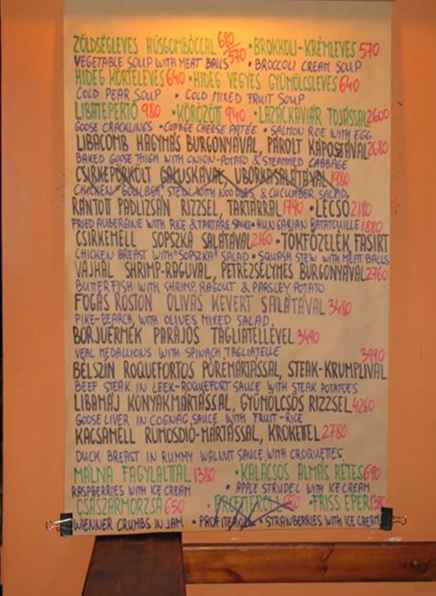 ZÖLDSÉGLEVES HÚSGOMBÓCCAL 680 570 • BROKKOLI-KRÉMLEVES 570
VEGETABLE SOUP WITH MEAT BALLS • BROCCOLI CREAM SOUP
HIDEG KÖRTELEVES 640 • HIDEG VEGYES GYÜMÖLCSLEVES 640
COLD PEAR SOUP • COLD MIXED FRUIT SOUP
LIBATEPERTŐ 980 • KÖRÖZÖTT 940 • LAZACKAVIÁR TOJÁSSAL 2600
GOOSE CRACKLINGS • COTTAGE CHEESE PATÉE • SALMON ROE WITH EGG
LIBACOMB HAGYMÁS BURGONYÁVAL, PÁROLT KÁPOSZTÁVAL 2680
BAKED GOOSE THIGH WITH ONION-POTATO & STEAMED CABBAGE
CSIRKEPÖRKÖLT GALUSKÁVAL, UBORKASALÁTÁVAL 1980
CHICKEN GOULASH STEW WITH NOODLES & CUCUMBER SALAD
RÁNTOTT PADLIZSÁN RIZZSEL, TARTÁRRAL 1740 • LECSÓ 2180
FRIED AUBERGINE WITH RICE & TARTARE SAUCE • HUNGARIAN RATATOUILLE
CSIRKEMELL SOPSZKA SALÁTÁVAL 2160 • TÖKFŐZELÉK, FASÍRT 1880
CHICKEN BREAST WITH "SOPSZKA" SALAD • SQUASH STEW WITH MEAT BALLS
VAJHAL SHRIMP-RAGUVAL, PETREZSELYMES BURGONYÁVAL 2760
BUTTERFISH WITH SHRIMP RAGOUT & PARSLEY POTATO
FOGAS ROSTON OLÍVÁS KEVERT SALÁTÁVAL 3480
PIKE-PEARCH, WITH OLIVES MIXED SALAD
BORJÚÉRMÉK PARAJOS TAGLIATELLÉVEL 3490
VEAL MEDALLIONS WITH SPINACH TAGLIATELLE
BÉLSZÍN ROQUEFORTOS PÓRÉMÁRTÁSSAL, STEAK-KRUMPLIVAL 3990
BEEF STEAK IN LEEK-ROQUEFORT SAUCE WITH STEAK POTATOES
LIBAMÁJ KONYAKMÁRTÁSSAL, GYÜMÖLCSÖS RIZZSEL 4260
GOOSE LIVER IN COGNAC SAUCE WITH FRUIT-RICE
KACSAMELL RUMOSDIÓ-MÁRTÁSSAL, KRÓKETTEL 2780
DUCK BREAST IN RUMMY WALNUT SAUCE WITH CROQUETTES
MÁLNA FAGYLALTTAL 1380 • KALÁCSOS ALMÁS RÉTES 690
RASPBERRIES WITH ICE CREAM • APPLE STRUDEL WITH ICE CREAM
CSÁSZÁRMORZSA 650 • PROFITEROL • FRISS EPER
WIENNER CRUMBS IN JAM • PROFITEROL • STRAWBERRIES WITH ICE CREAM